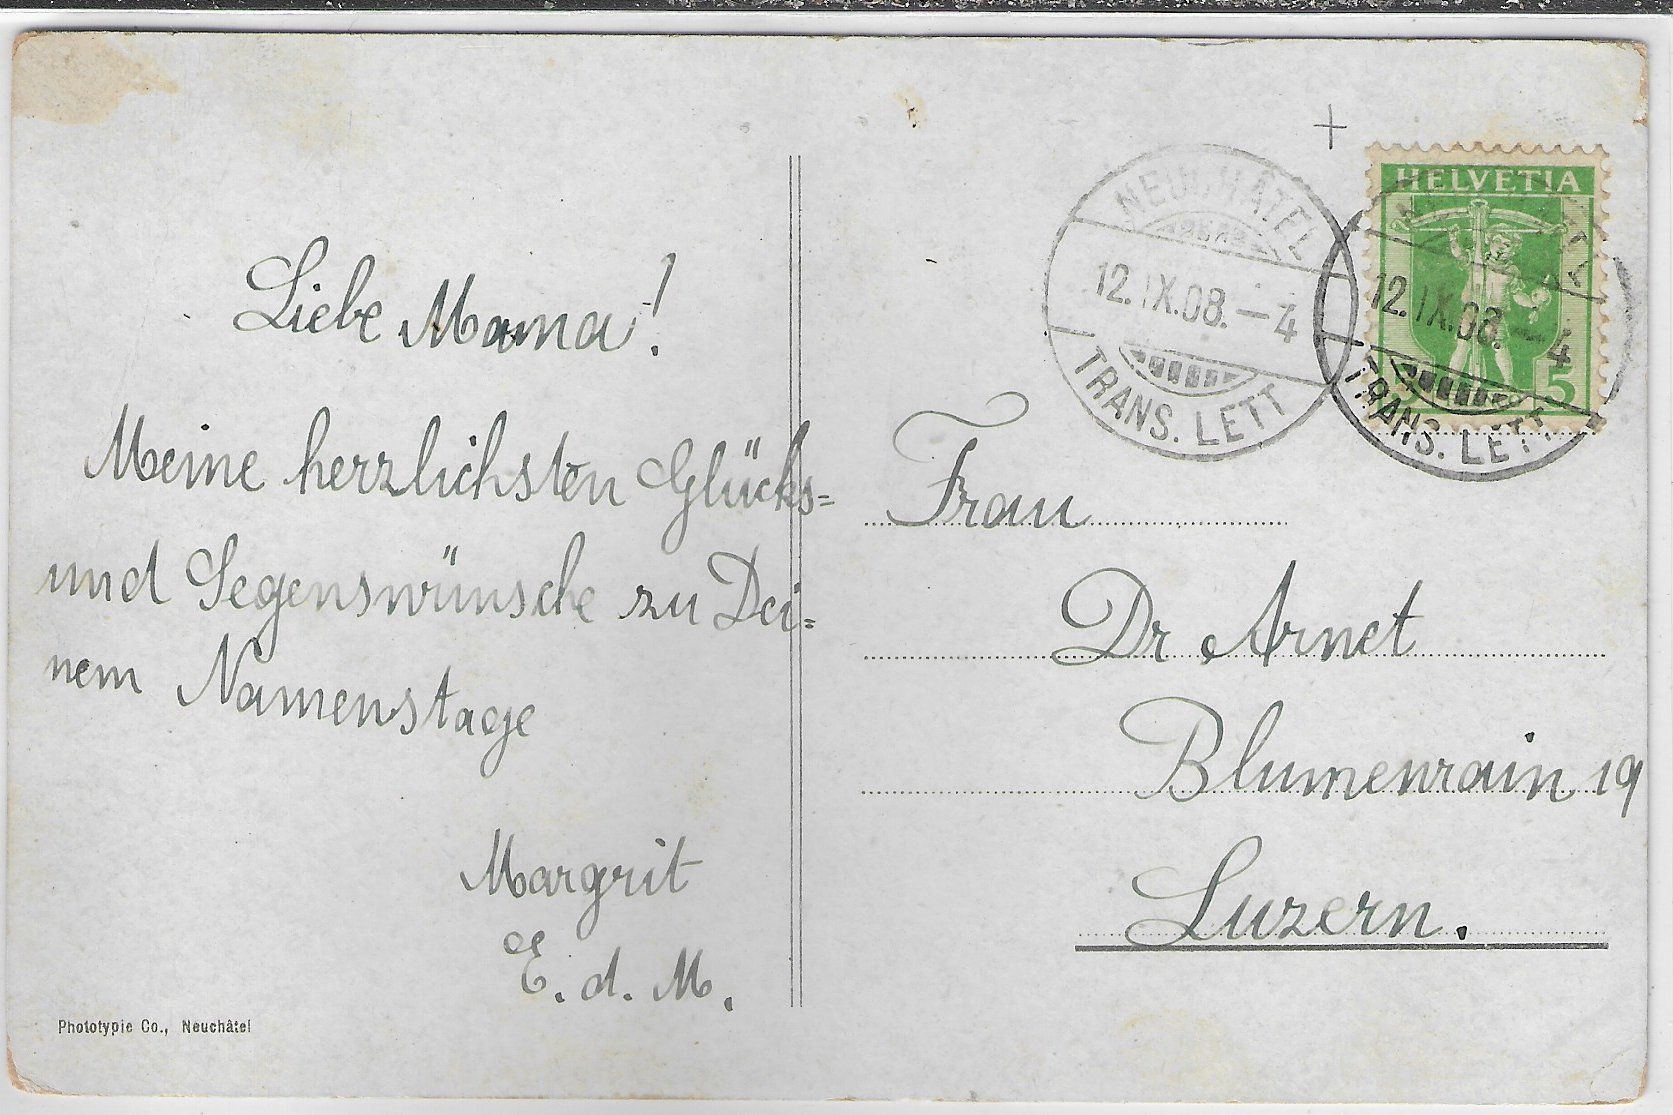 Liebe Mama!
Meine herzlichsten Glücks=
und Segenswünsche zu Dei=
nem Namenstage
Margrit
E. d. M.
Phototypie Co., Neuchâtel
NEUCHÂTEL
12.IX.08.–4
TRANS. LETT
HELVETIA
12.IX.08.–4
5
TRANS. LETT
Frau
Dr Arnet
Blumenrain 19
Luzern.